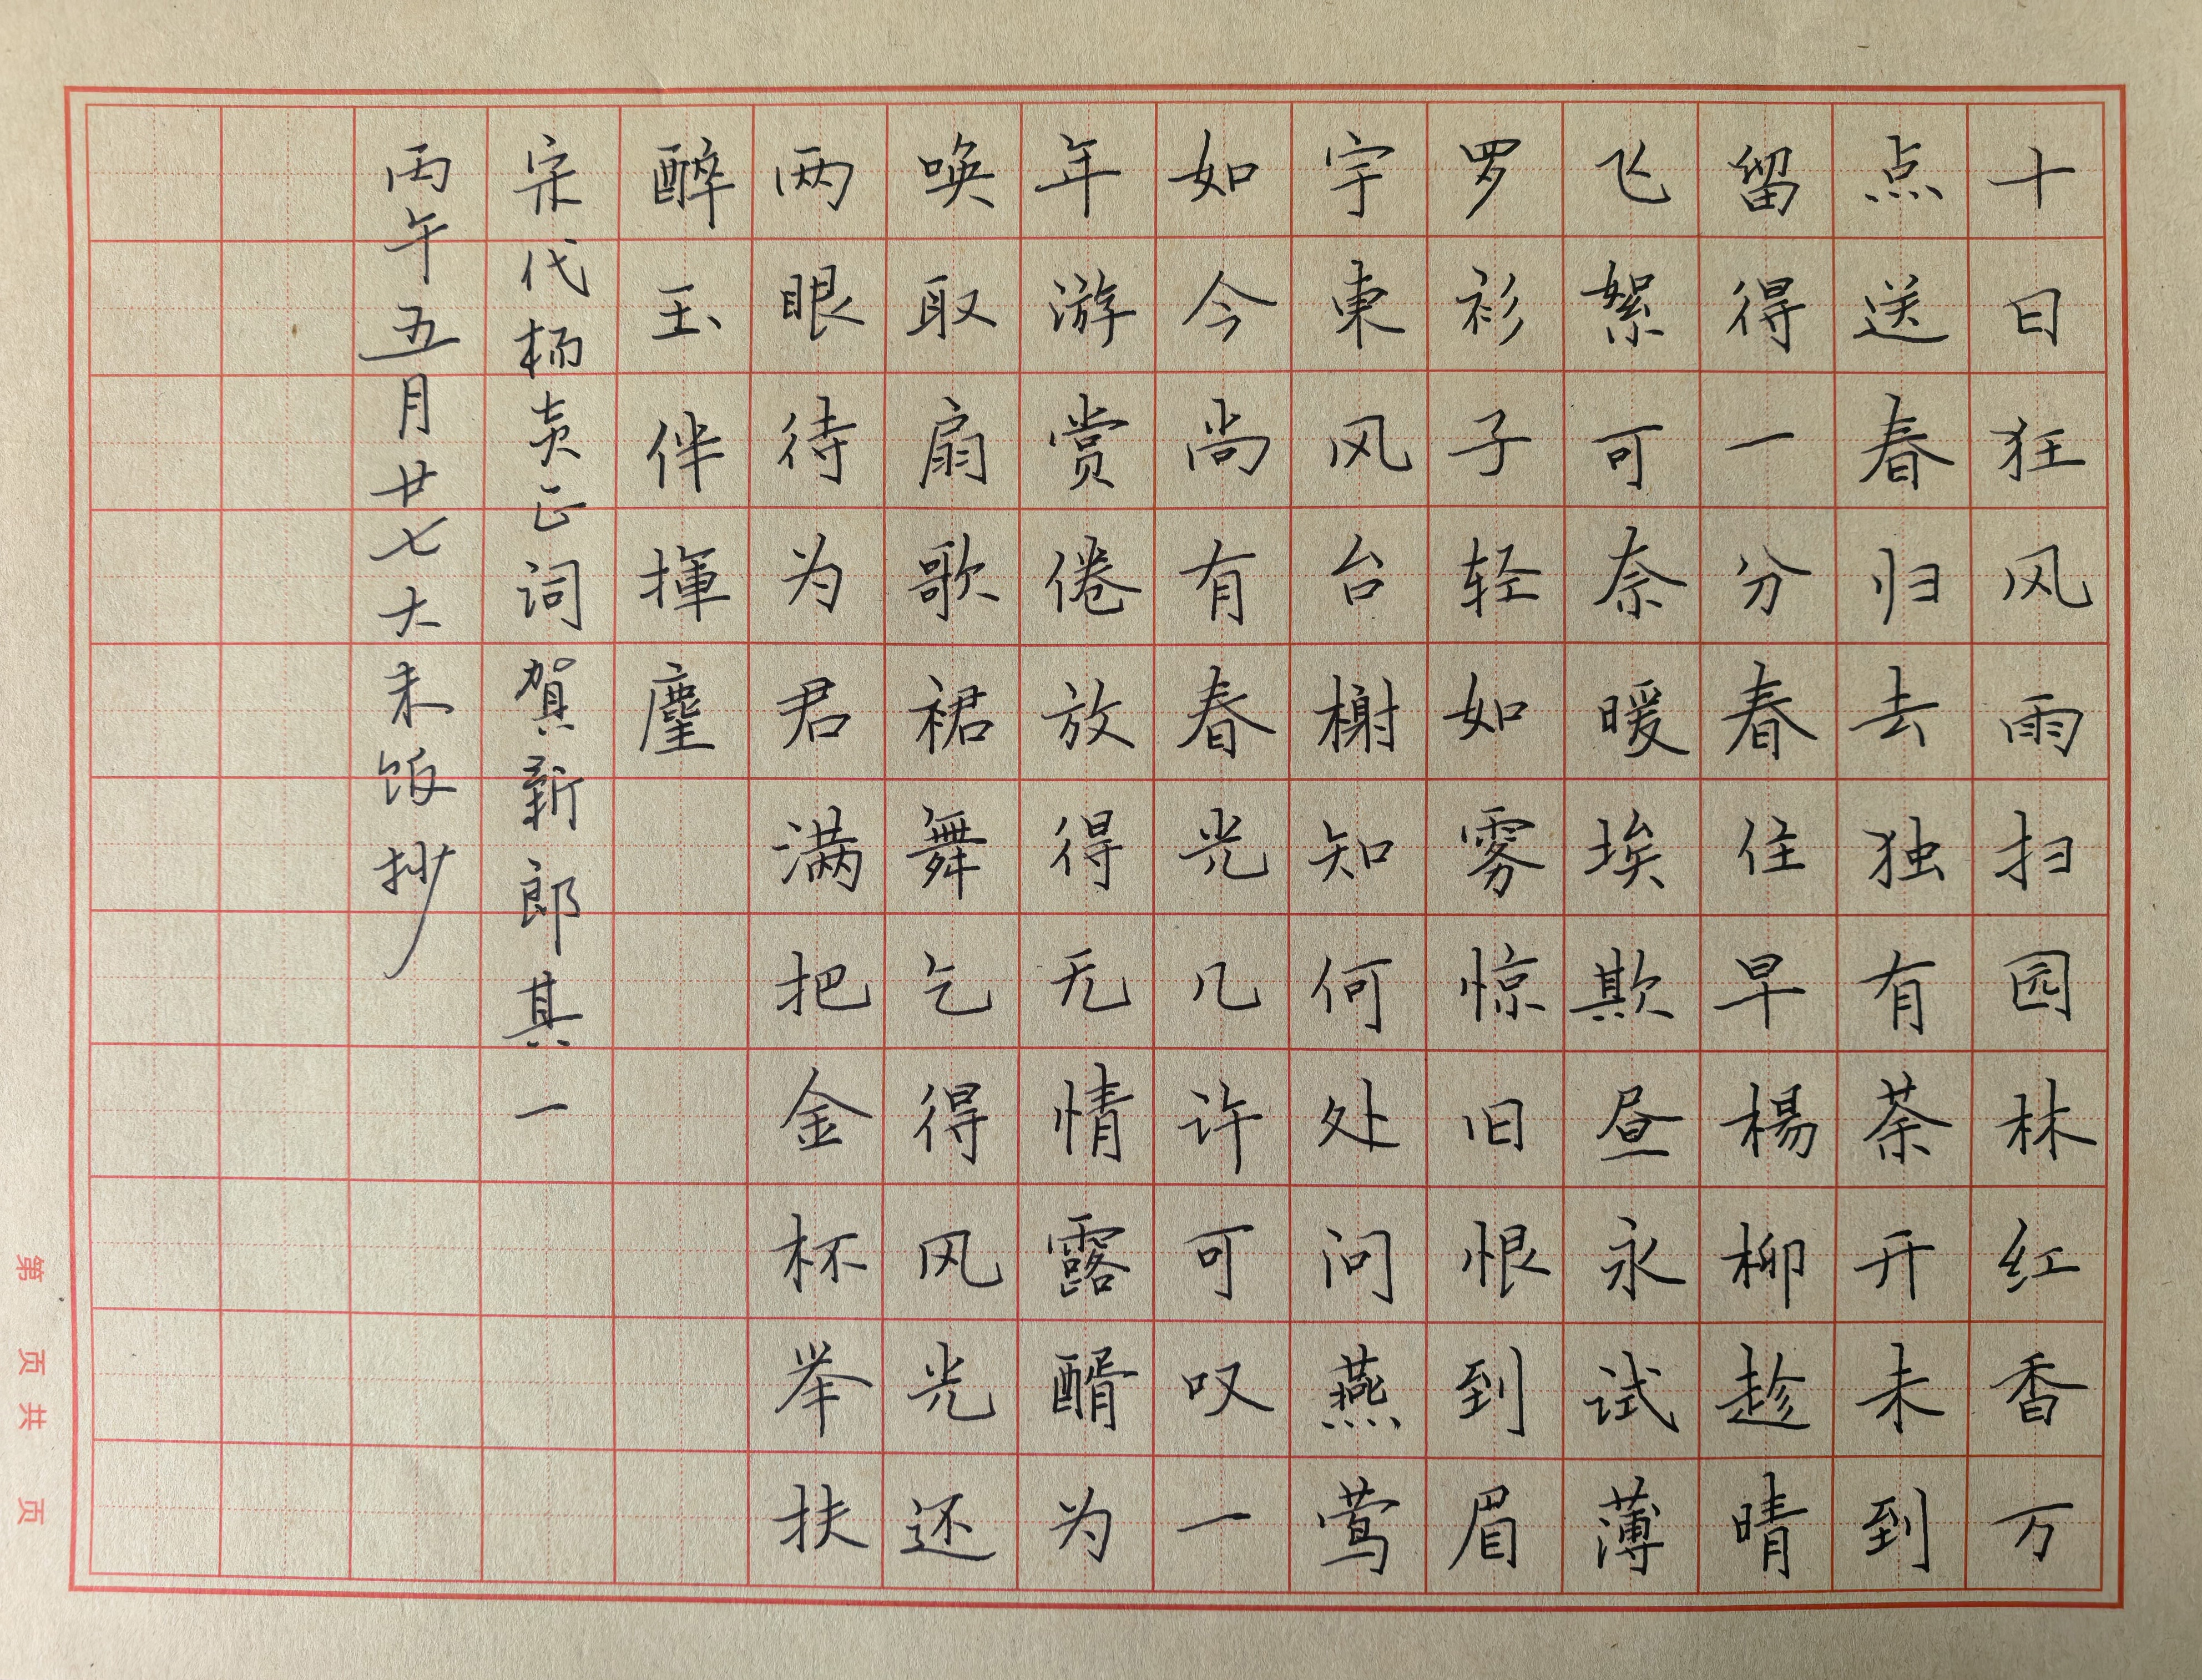 十日狂风雨扫园林红香万
点送春归去独有荼开未到
留得一分春住早楊柳趁晴
飞絮可奈暖埃欺昼永试薄
罗衫子轻如雾惊旧恨到眉
宇東风台榭知何处问燕莺
如今尚有春光几许可叹一
年游赏倦放得无情露醑为
唤取扇歌裙舞乞得风光还
两眼待为君满把金杯举扶
醉玉伴揮麈
宋代杨炎正词賀新郎其一
丙午五月廿七大未饭抄
第 页 共 页